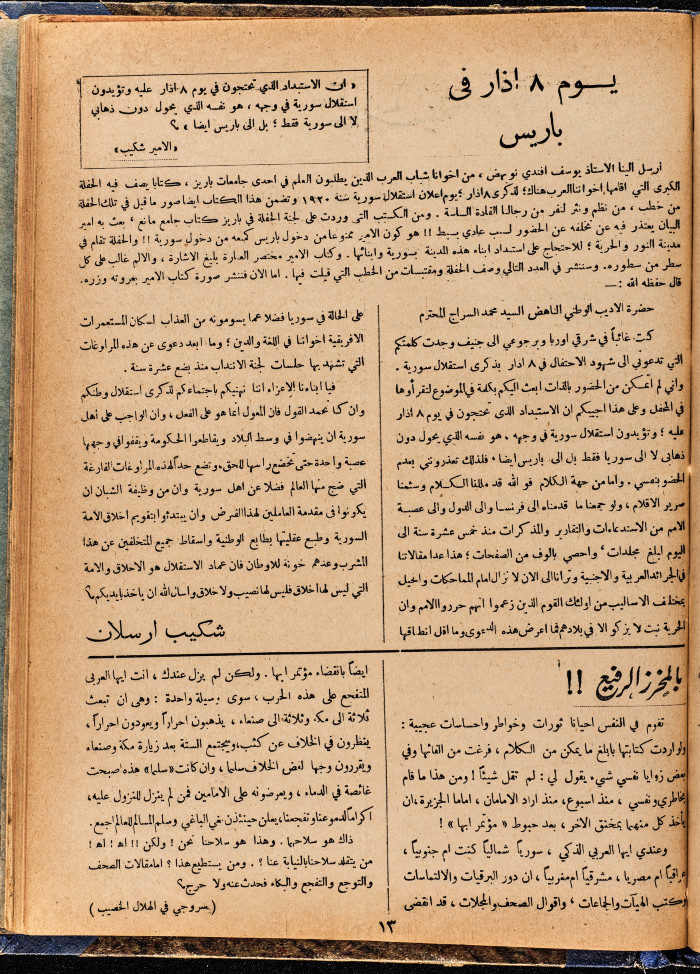 يوم ٨ اذار في
باريس
« ان الاستبداد الذي تحتجون في يوم ٨ اذار عليه وتؤيدون
استقلال سورية في وجهه ، هو نفسه الذي يحول دون ذهابي
لا الى سورية فقط ؛ بل الى باريس ايضا » ؟
« الامير شكيب »
ارسل الينا الاستاذ يوسف افندي نويهض ، من اخواننا شباب العرب الذين يطلبون العلم في احدى جامعات باريز ، كتابا يصف فيه الحفلة
الكبرى التي اقامها اخواننا العرب هناك؛ لذكرى ٨ اذار ؛ يوم اعلان استقلال سورية سنة ١٩٢٠ وتضمن هذا الكتاب ايضا صور ما قيل في تلك الحفلة
من خطب ، من نظم ونثر لنفر من رجالنا القادة الساسة . ومن الكتب التي وردت على لجنة الحفلة في باريز كتاب جامع مانع ؛ بعث به امير
البيان يعتذر فيه عن تخلفه عن الحضور لسبب عادي بسيط !! هو كون الامير ممنوعا من دخول باريس كمنعه من دخول سورية !! والحفلة تقام في
مدينة النور والحرية ؛ للاحتجاج على استبداد ابناء هذه المدينة بسورية وابنائها . وكتاب الامير مختصر العبارة بليغ الاشارة ، والالم غالب على كل
سطر من سطوره. وسننشر في العدد التالي وصف الحفلة ومقتبسات من الخطب التي قيلت فيها . اما الان فننشر صورة كتاب الامير بعروته وزره.
قال حفظه الله : —
حضرة الاديب الوطني الناهض السيد محمد السراج المحترم
كنت غائباً في شرقي اوربا وبرجوعي الى جنيف وجدت كلمتكم
التي تدعوني الى شهود الاحتفال في ٨ اذار بذكرى استقلال سورية .
واني لم اتمكن من الحضور بالذات ابعث اليكم بكلمة في الموضوع لتقرأوها
في المحفل وعلى هذا اجيبكم ان الاستبداد الذى تحتجون في يوم ٨ اذار
عليه ؛ وتؤيدون استقلال سورية في وجهه ، هو نفسه الذي يحول دون
ذهابى لا الى سوريا فقط بل الى باريس ايضا . فلذلك تعذرونني بعدم
الحضور بنفسي . واما من جهة الكلام فو الله قد مللنا الكلام وسئمنا
صرير الاقلام ، ولو جمعنا ما قدمناه الى فرنسا والى الدول والى عصبة
الامم من الاستدعاءات والتقارير والمذكرات منذ خمس عشرة سنة الى
اليوم لبلغ مجلدات ؛ واحصي بالوف من الصفحات ؛ هذا عدا مقالاتنا
في الجرائد العربية والاجنبية وترانا الى الان لا نزال امام المماحكات والحيل
بمختلف الاساليب من اولئك القوم الذين زعموا انهم حرروا الامم وان
الحرية نبت لا يزكو الا في بلادهم فما اعرض هذه الدعوى وما اقل انطباقها
على الحالة في سوريا فضلا عما يسومونه من العذاب لسكان المستعمرات
الافريقية اخواننا في اللغة والدين ؛ وما ابعد دعوى عن هذه المراوغات
التي تشهد بها جلسات لجنة الانتداب منذ بضع عشرة سنة .
فيا ابناءنا الاعزاء اننا نهنيكم باجتماعكم لذكرى استقلال وطنكم
وان كنا نحمد القول فان المعول انما هو على الفعل ، وان الواجب على أهل
سورية ان ينهضوا في وسط البلاد ويقاطعوا الحكومة ويقفوا في وجهها
عصبة واحدة حتى تخضع راسها للحق، وتضع حداً لهذه المراوغات الفارغة
التي ضج منها العالم فضلا عن اهل سورية وان من وظيفة الشبان ان
يكونوا في مقدمة العاملين لهذا الغرض وان يبتدئوا بتقويم اخلاق الامة
السورية وطبع عقليتها بطابع الوطنية واسقاط جميع المتخلفين عن هذا
المشرب وعدهم خونة للاوطان فان عماد الاستقلال هو الاخلاق والامة
التي ليس لها اخلاق فليس لها نصيب ولا خلاق واسال الله ان ياخذ بايديكم ؟
شكيب ارسلان
بالمخرز الرفيع !!
تقوم في النفس احيانا ثورات وخواطر واحساسات عجيبة :
ولو اردت كتابتها بابلغ ما يمكن من الكلام ، فرغت من القائها وفي
بعض زوايا نفسي شيء يقول لي : لم تقل شيئاً ! ومن هذا ما قام
بخاطري ونفسي ، منذ اسبوع، منذ اراد الامامان ، اماما الجزيرة، ان
يأخذ كل منهما بمخنق الاخر ، بعد حبوط « مؤتمر ابها » !
وعندي ايها العربي الذكي ، سورياً شمالياً كنت ام جنوبياً ،
عراقياً ام مصريا ، مشرقياً ام مغربياً ، ان دور البرقيات والالتماسات
وكتب الهيآت والجماعات ، واقوال الصحف والمجلات ، قد انقضى
ايضاً بانقضاء مؤتمر ابها . ولكن لم يزل عندك ، انت ايها العربى
المتفجع على هذه الحرب ، سوى وسيلة واحدة : وهى ان تبعث
ثلاثة الى مكة وثلاثة الى صنعاء ، يذهبون احراراً ويعودون احراراً ،
ينظرون في الخلاف عن كثب، ويجتمع الستة بعد زيارة مكة وصنعاء
ويقررون وجها لفض الخلاف سلما ، وان كانت «سلما» هذه اصبحت
غائصة في الدماء ، ويعرضونه على الامامين فمن لم ينزل للنزول عليه،
اكراماً لدموعنا وتفجعنا، يعلن حينئذ بغي الباغي وسلم المسالم للعالم اجمع .
ذاك هو سلاحها ، وهذا هو سلاحنا نحن ! ولكن !! اه ! اه !
من يتقلد سلاحنا بالنيابة عنا ؟ . ومن يستطيع هذا ؟ اما مقالات الصحف
والتوجع والتفجع والبكاء فحدث عنه ولا حرج ؟
( سروجي في الهلال الخصيب )
١٣